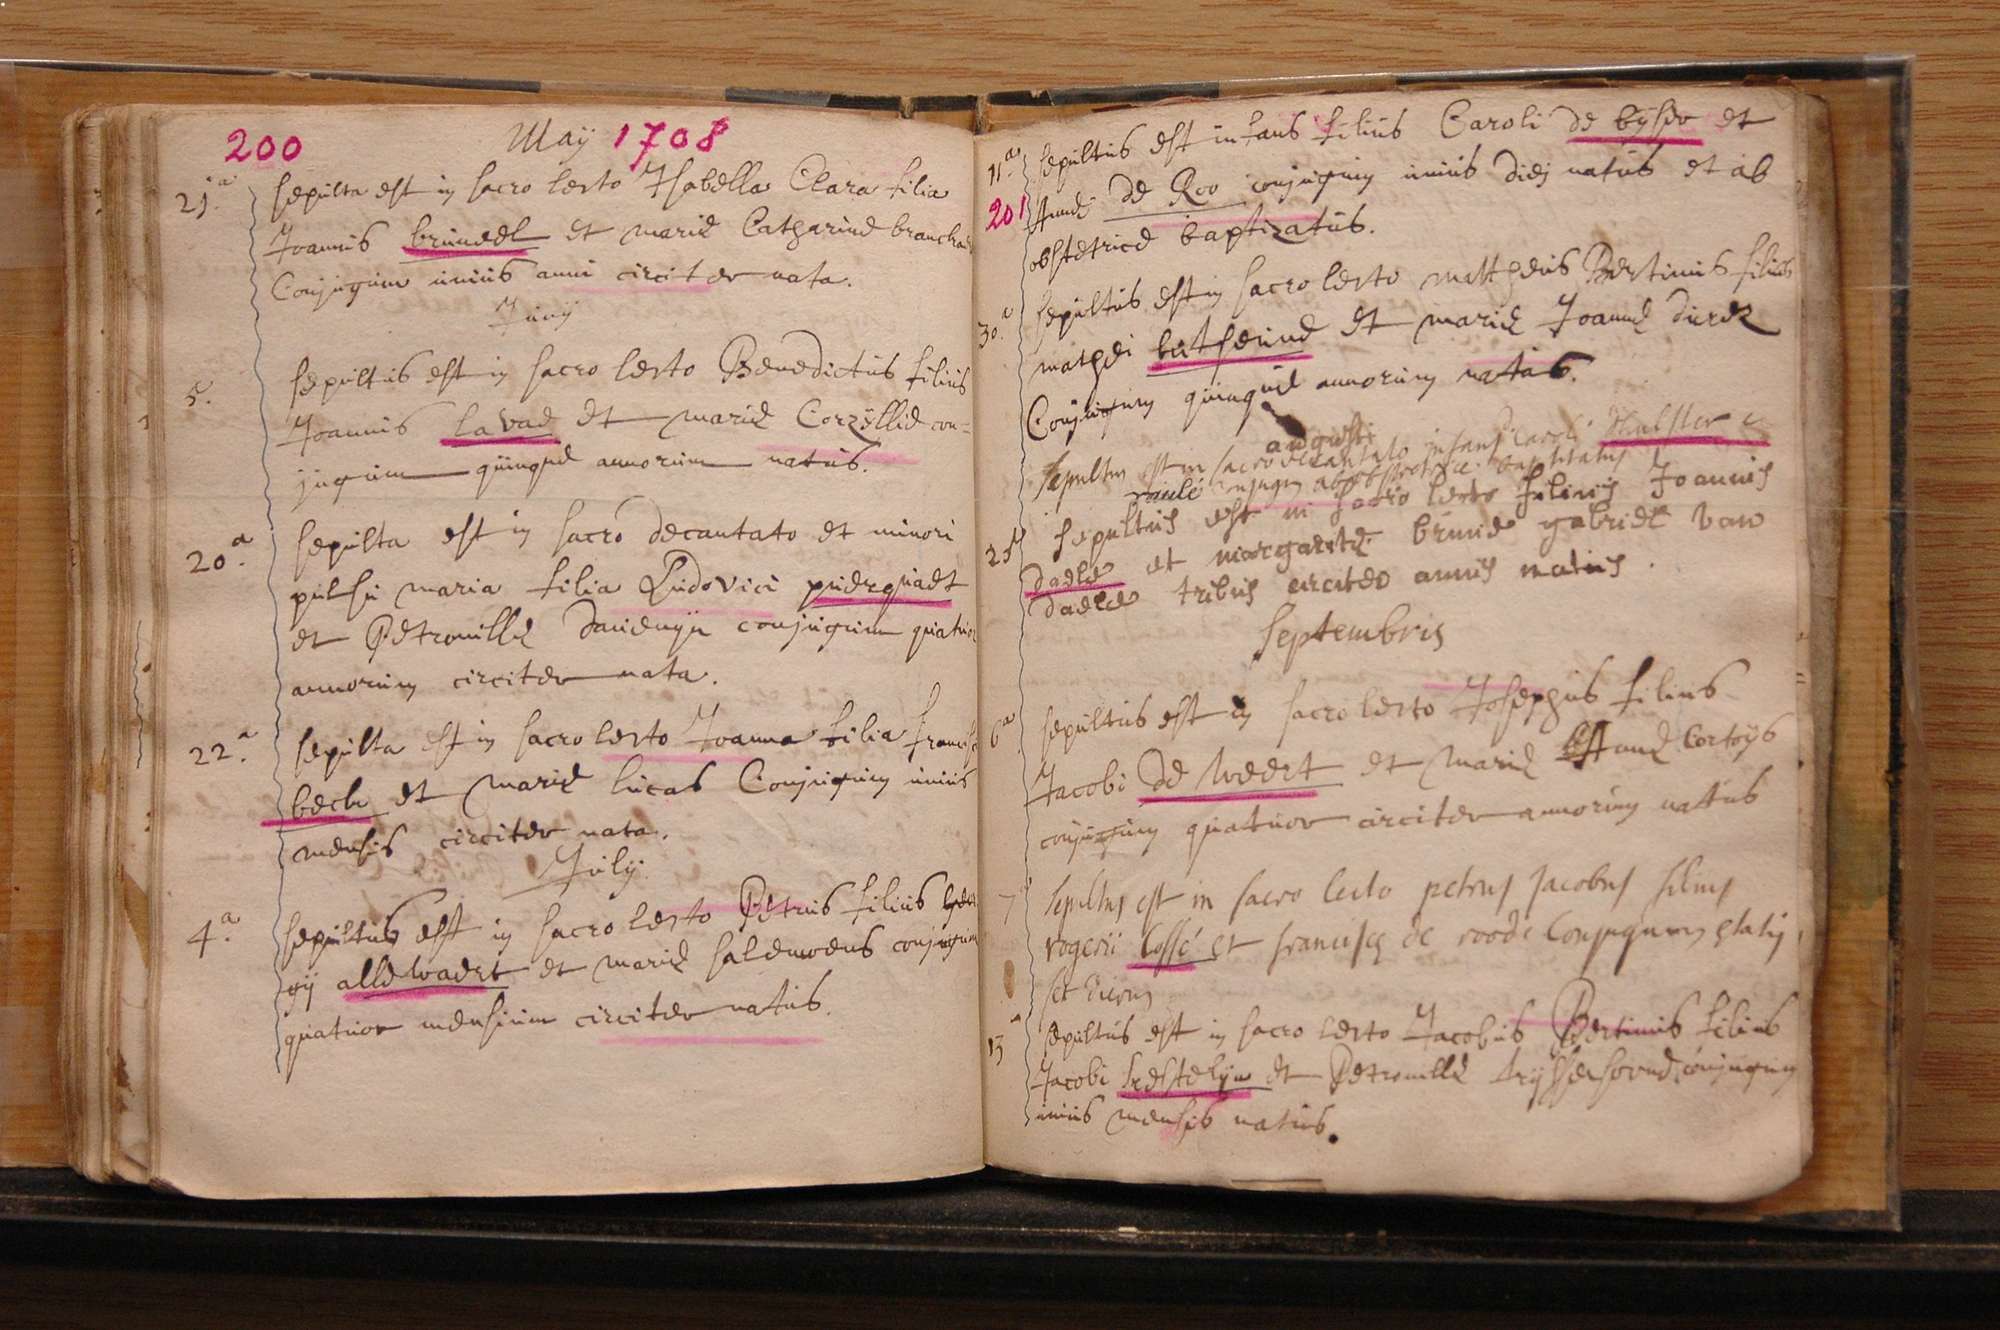 200
May 1708
21.a sepulta est in sacro lecto Isabella Clara filia
Joannis bruneel et mariæ Catharinæ
Conjugum unius anni circiter nata.
Junij
5. sepultus est in sacro lecto Benedictus filius
Joannis la vae et mariæ con=
jugum quinque annorum natus.
20.a sepulta est in sacro decantato et minori
pulsu maria filia Ludovici
et Petronillæ conjugum quatuor
annorum circiter nata.
22.a sepulta est in sacro lecto Joanna filia
becle et mariæ lucas Conjugum unius
mensis circiter nata.
July
4.a sepultus est in sacro lecto Petrus filius
gij allewaert et mariæ salemoens conjugum
quatuor mensium circiter natus.
11.a sepultus est infans filius Caroli de byser et
201 Annæ de Roo conjugum unius diei natus et ab
obstetrice baptizatus.
30.a sepultus est in sacro lecto mattheus Bertinus filius
mathei et mariæ Joannæ
Conjugum quinque annorum natus.
augusti
sepultus est in sacro decantato infans Caroli et
conjugum ab obstetrice baptizatus
25 sepultus est in sacro lecto filius Joannis
daele et margaretæ brune gabriel van
daele tribus circiter annis natus.
Septembris
6a sepultus est in sacro lecto Josephus filius
Jacobi de weert et mariæ Annæ Cortoys
conjugum quatuor circiter annorum natus
7 sepultus est in sacro lecto petrus Jacobus filius
rogerii Cossé et franciscæ de roode Conjugum ætatis
13 sepultus est in sacro lecto Jacobus Bertinus filius
Jacobi et Petronillæ conjugum
unius mensis natus.